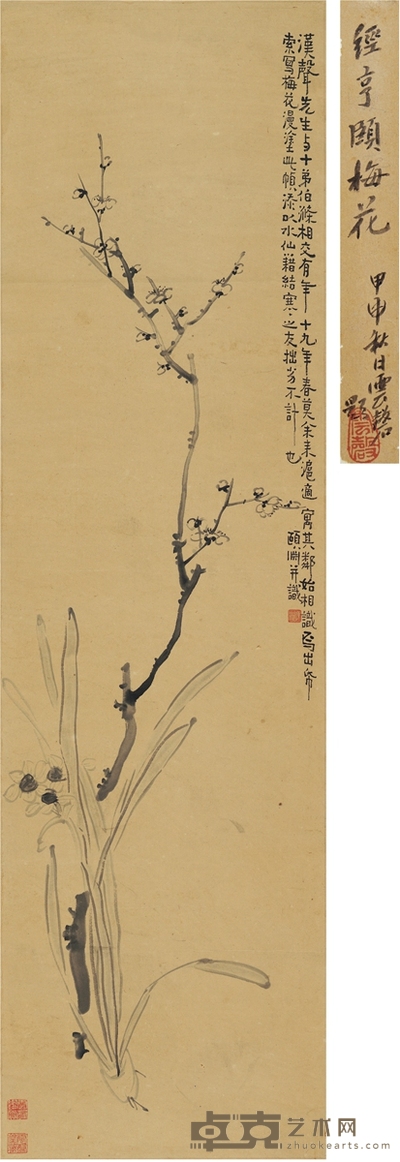 漢聲先生与十弟伯滌相交有年十九年春莫余来滬適寓其鄰始相識即出紙
索写梅花漫塗此幀添以水仙藉結寒之友拙劣不計也
頤淵并識
經亨頤梅花
甲申秋日雲聲題
卓克艺术网
www.zhuokearts.com